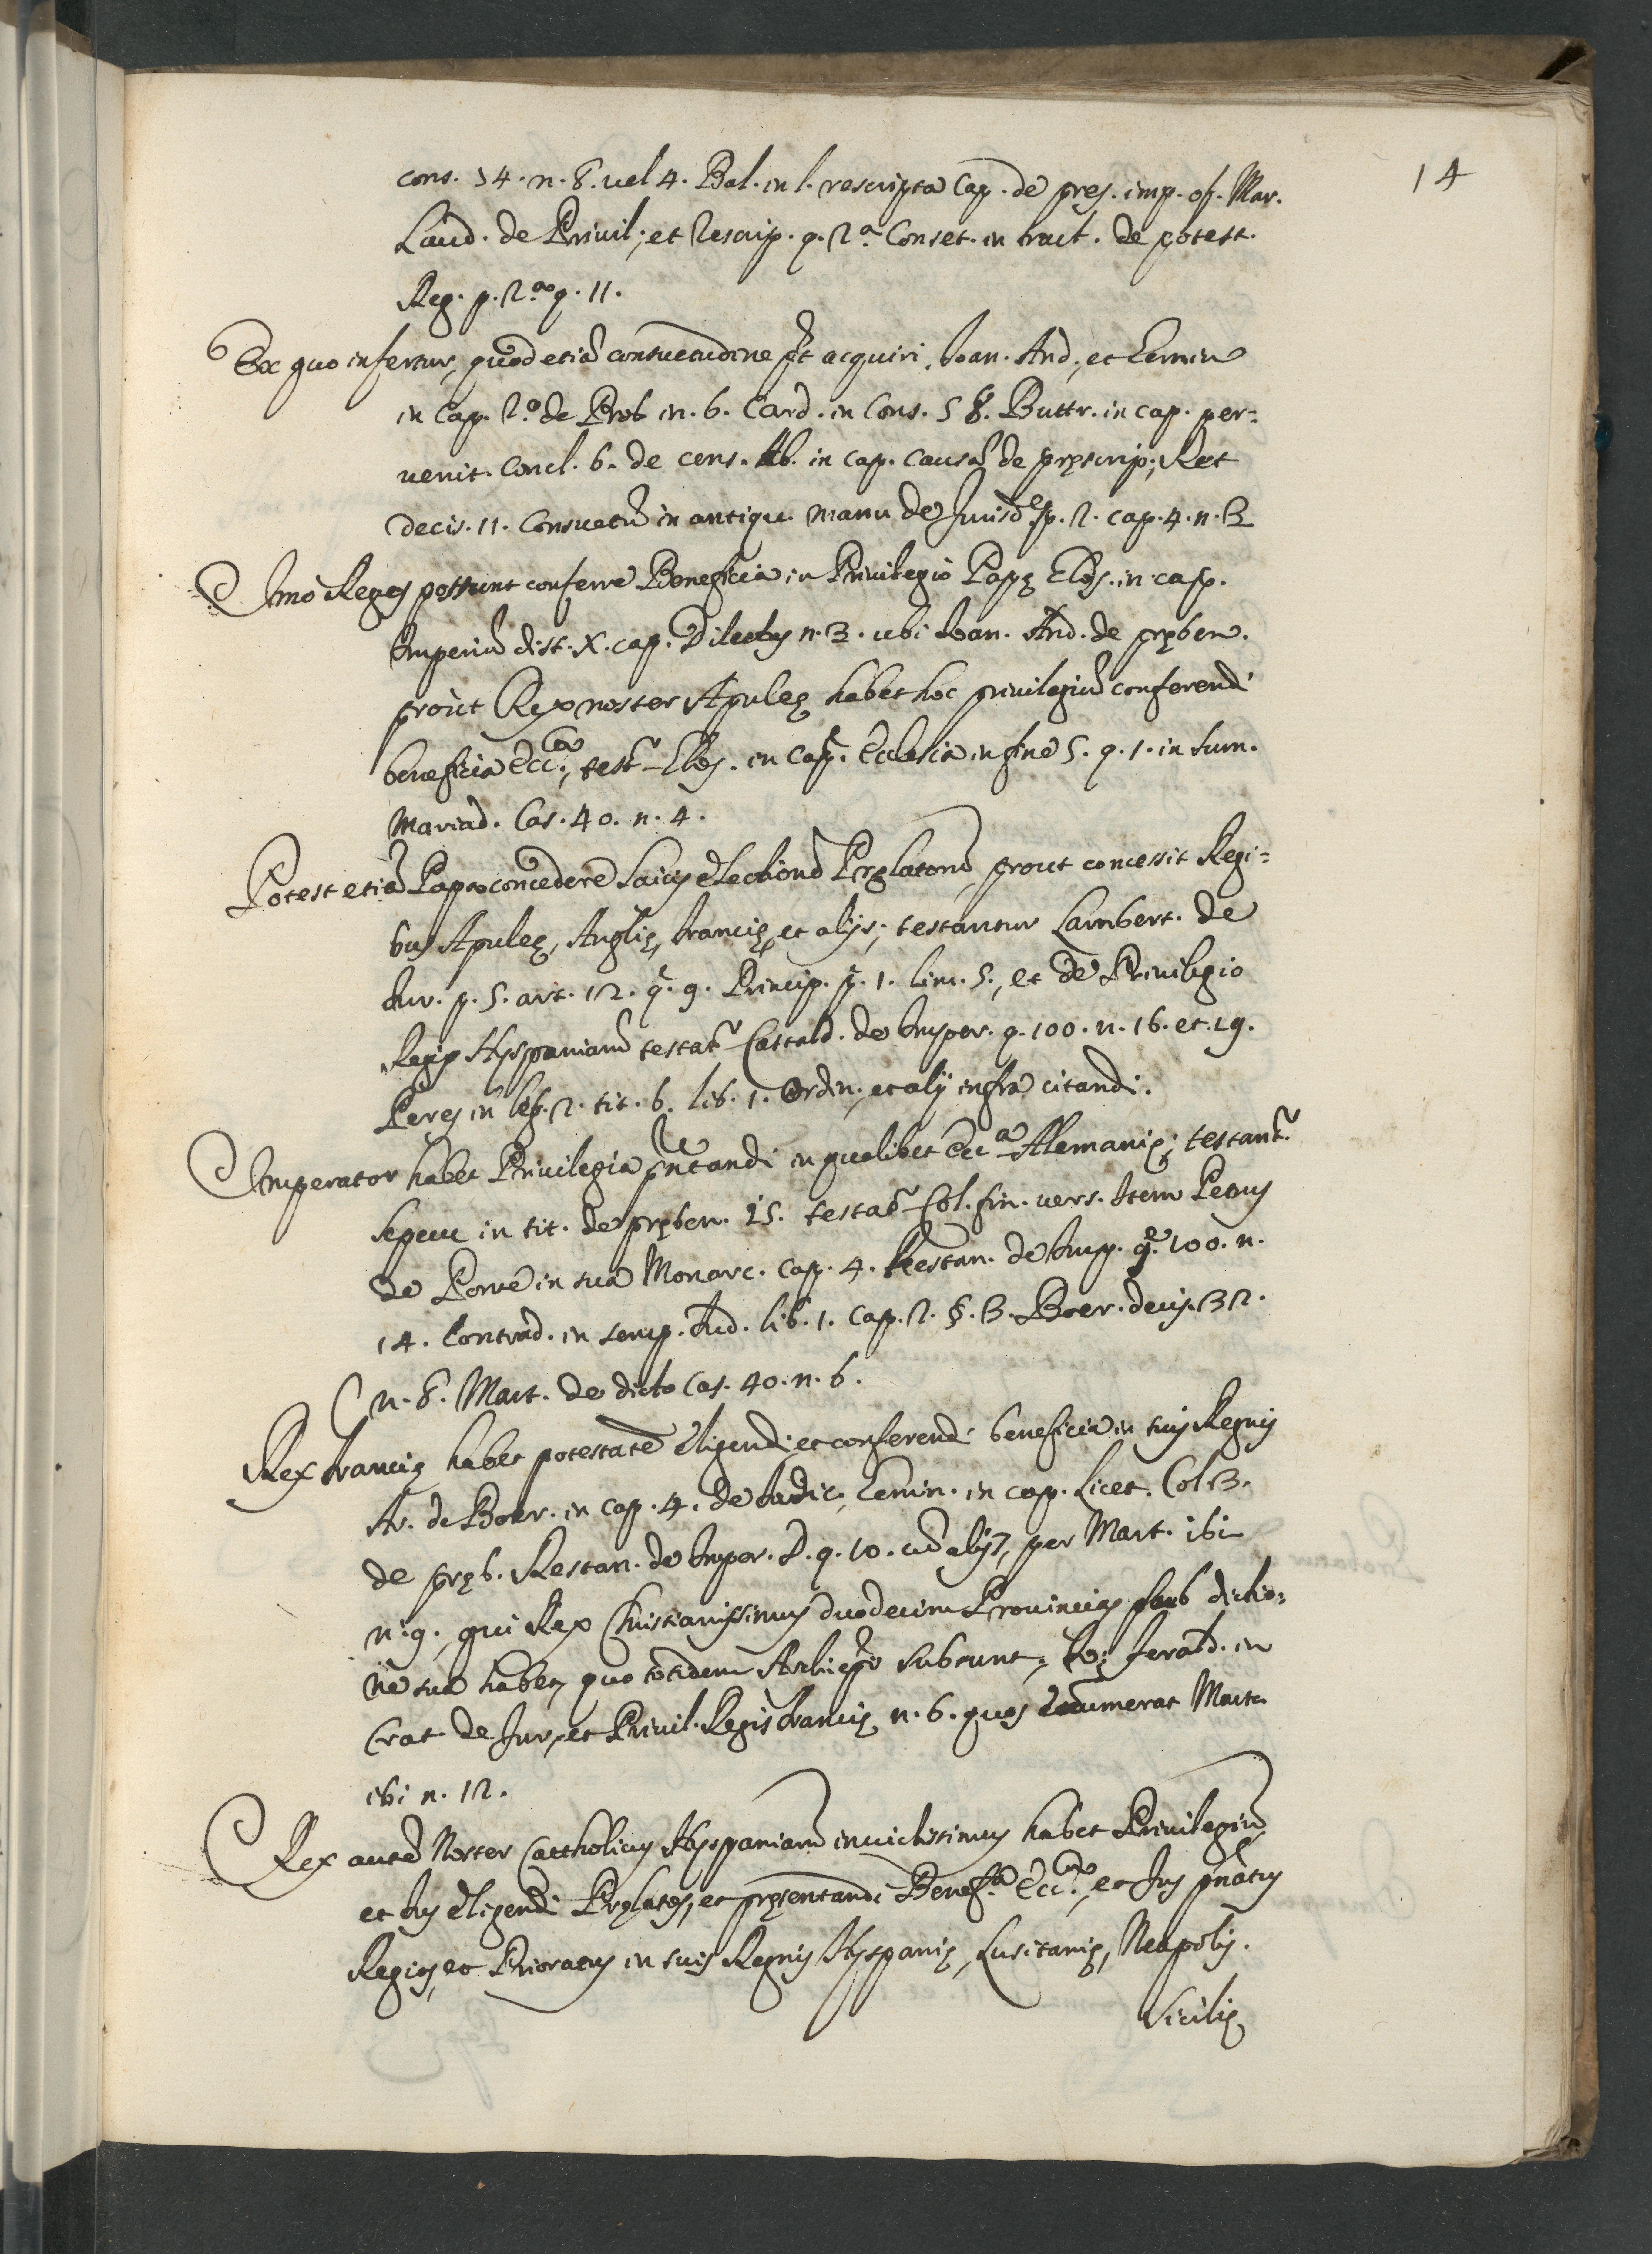 14
cons. 34. n. 8. uel 4. Bal. in l. rescripta Cap. de preş. imp. of. Mar.
Laud. de Priuil; et Rescrip. q. 2.ª Conset. in tract. de potest.
Reg. p. 2.ª q. 11.
Ex quo infertur, quod etiã consuetudine pt̃ acquiri. Ioan. And; et Gemin
in Cap. 2.º de Preb in. 6. Card. in Cons. 58. Buttr. in cap. per=
uenit. Concl. 6. de cens. Ab. in cap. causã de pręscrip; Ret
decis. 11. Consuetũ in antiqu. manu de Jurisdᵉ p. 2. cap. 4. n. 3
Imo Reges possunt conferre Beneficia in Priuilegio Papę Glos. in cap.
Imperiũ dist. X. cap. Dilectus n. 3. ubi Ioan. And. de pręben.
proùt Rex noster Apuleę habet hoc priuilegiũ conferendi
beneficia Ecc.ᶜᵃ, test̃ Glos. in Cap. Ecclesia in fine 5. q. 1. in sum.
Mariad. Cas. 40. n. 4.
Potest etiã Papa concedere Laicis electionẽ Pręlatorũ, prout concessit Regi=
bus Apuleę, Anglię, Francię, et alijs; testantur Lambert. de
Iur. p. 5. art. 12. q. 9. Princip. p. 1. lim. 5., et de Priuilegio
Regis Hyspaniarũ testat̃ Castald. de Imper. q. 100. n. 16. et. 19.
Peres in leg. 2. tit. 6. lib. 1. Ordin; et alij infra citandi.
Imperator habet Privilegia pñtandi in qualibet Eccª Alemanię; testant̃
sepcu in tit. de pręben. 25. testat̃ Col. fin. uers. Item Petrus
de Ponte in sua Monarc. Cap. 4. Restau. de Imp. q. 100. n.
14. Contrad. in temp. Iud. lib. 1. Cap. 2. §. 3. Boer. decis. 32.
n. 8. Mart. de dicto Cas. 40. n. 6.
Rex Francię habet potestatẽ eligendi, et conferendi beneficia in suis Regnis
Ar. de Boer. in cap. 4. de Iudic, Gemin. in cap. Licet. Col 3.
de pręb. Restau. de Imper. D. q. 10. cũ alijs, per Mart. ibi
n. 9., qui Rex Christianissimus duodecim Prouincias sub dictio=
ne sua habet, quo totidem Archiepi subsunt, Io: Ferald. in
trat. de Jur, et Priuil. Regis Francię n. 6. quos enumerat Mart.
ibi n. 12.
Rex autẽ Noster Cattholicus Hyspaniarũ inuictissimus habet Priuilegiũ,
et Ius eligendi Pręlatos, et pręsentandi Benef.ª Ecc.ᶜᵃ, et Jus pñatus
Regios, et Prioratus in suis Regnis Hyspanię, Lusitanię, Neapolis.
Sicilię